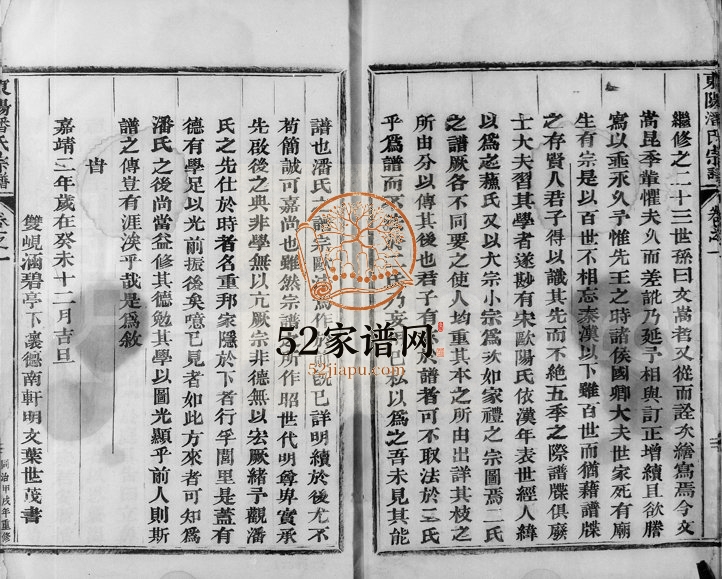 東陽潘氏宗譜
繼修之二十三世孫曰文嵩者又從而詮次繕寫焉今文
嵩昆季輩懼夫久而差訛乃延予相與訂正增續且欲謄
寫以垂永久予惟先王之時諸侯國卿大夫世家死有廟
生有宗是以百世不相忘秦漢以下雖百世而猶藉譜牒
之存賢人君子得以識其先而不絕五季之際譜牒俱廢
士大夫習其學者遂尠有宋歐陽氏依漢年表世經人緯
以爲志蘇氏又以大宗小宗爲次如家禮之宗圖焉二氏
之譜厥各不同要之使人均重其本之所由出詳其枝之
所由分以傳其後也君子有 於譜者可不取法於三氏
乎爲譜而不 於二 乃妄 己私以爲之吾未見其能
譜也潘氏 譜宗歐 作 旣已詳明續於後尤不
苟簡誠可嘉尚也雖然宗譜 所作昭世代明尊卑實承
先啟後之典非學無以亢厥宗非德無以宏厥緒予觀潘
氏之先仕於時者名重邦家隱於下者行孚閭里是蓋有
德有學足以光前振後矣噫已見者如此方來者可知爲
潘氏之後尚當益修其德勉其學以圖光顯乎前人則斯
譜之傳豈有涯涘乎哉是爲敘
嘉靖二年歲在癸未十二月吉旦
雙峴涵碧亭下義德南軒明文葉世茂書
東陽潘氏宗譜 卷之一
同治甲戌年重修
52家谱网
52jiapu.com